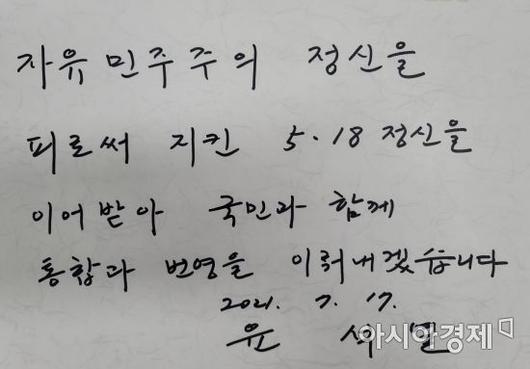 자유민주주의 정신을
피로써 지킨 5·18 정신을
이어받아 국민과 함께
통합과 번영을 이뤄내겠습니다
2021. 7. 17.
윤 석열
아시아경제